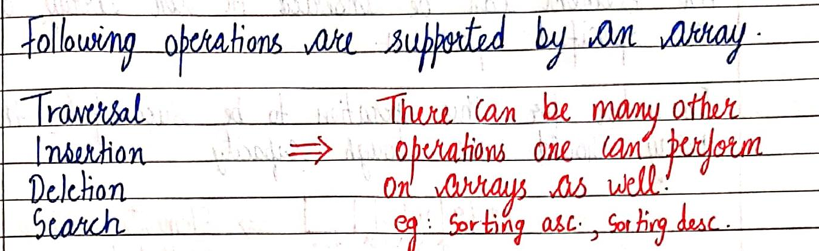 Following operations are supported by an array.
Traversal
Insertion
Deletion
Search
⇒
There can be many other
operations one can perform
on arrays as well.
eg: Sorting asc., Sorting desc.